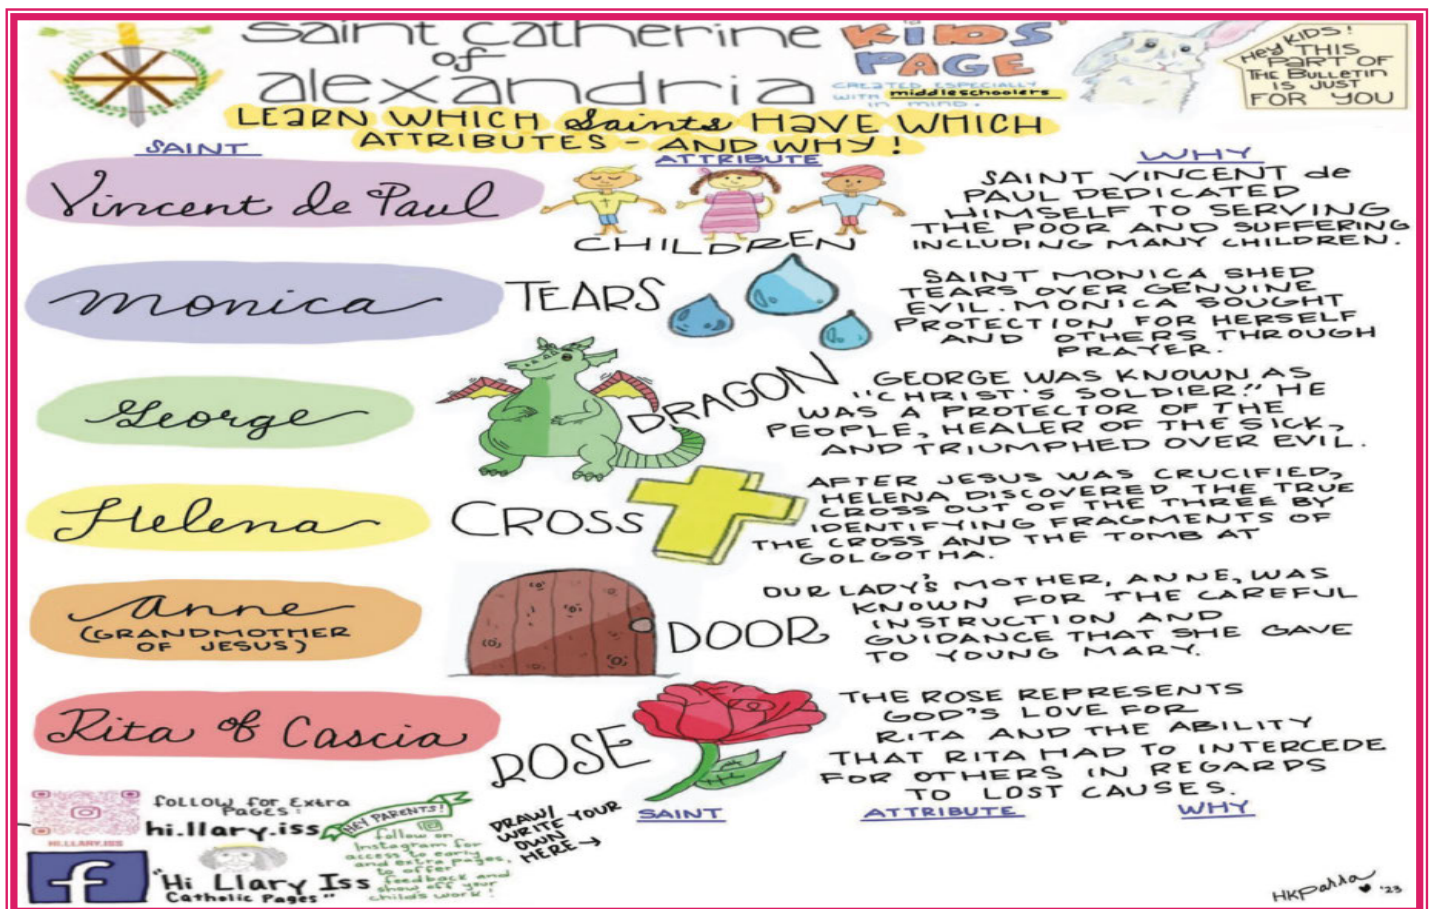 Saint Catherine
of
alexandria
KiDS'
PAGE
CREATED ESPECIALLY
WITH middleschoolers
IN MIND.
Hey KIDS!
THIS
PART OF
THE BULLETIN
IS JUST
FOR YOU
LEARN WHICH Saints HAVE WHICH
ATTRIBUTES - AND WHY!
SAINT
ATTRIBUTE
WHY
Vincent de Paul
CHILDREN
SAINT VINCENT de
PAUL DEDICATED
HIMSELF TO SERVING
THE POOR AND SUFFERING
INCLUDING MANY CHILDREN.
Monica
TEARS
SAINT MONICA SHED
TEARS OVER GENUINE
EVIL. MONICA SOUGHT
PROTECTION FOR HERSELF
AND OTHERS THROUGH
PRAYER.
George
DRAGON
GEORGE WAS KNOWN AS
"CHRIST'S SOLDIER." HE
WAS A PROTECTOR OF THE
PEOPLE, HEALER OF THE SICK,
AND TRIUMPHED OVER EVIL.
Helena
CROSS
AFTER JESUS WAS CRUCIFIED,
HELENA DISCOVERED THE TRUE
CROSS OUT OF THE THREE BY
IDENTIFYING FRAGMENTS OF
THE CROSS AND THE TOMB AT
GOLGOTHA.
Anne
(GRANDMOTHER
OF JESUS)
DOOR
OUR LADY'S MOTHER, ANNE, WAS
KNOWN FOR THE CAREFUL
INSTRUCTION AND
GUIDANCE THAT SHE GAVE
TO YOUNG MARY.
Rita of Cascia
ROSE
THE ROSE REPRESENTS
GOD'S LOVE FOR
RITA AND THE ABILITY
THAT RITA HAD TO INTERCEDE
FOR OTHERS IN REGARDS
TO LOST CAUSES.
HI.LLARY.ISS
follow for Extra
Pages:
hi.llary.iss
f
"Hi Llary Iss
Catholic Pages"
HEY PARENTS!
follow on
Instagram for
access to early
and extra pages,
to offer
feedback and
show off your
child's work!
DRAW/
WRITE YOUR
OWN
HERE →
SAINT
ATTRIBUTE
WHY
HKParra
'23